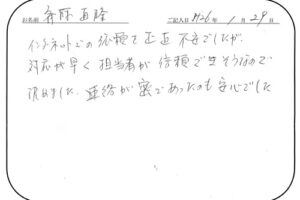 お名前 斉藤直隆 ご記入日 H26年1月29日
インターネットでの依頼で正直不安でしたが
対応が早く担当者が信頼できそうなので
決めました。連絡が密であったのも安心でした